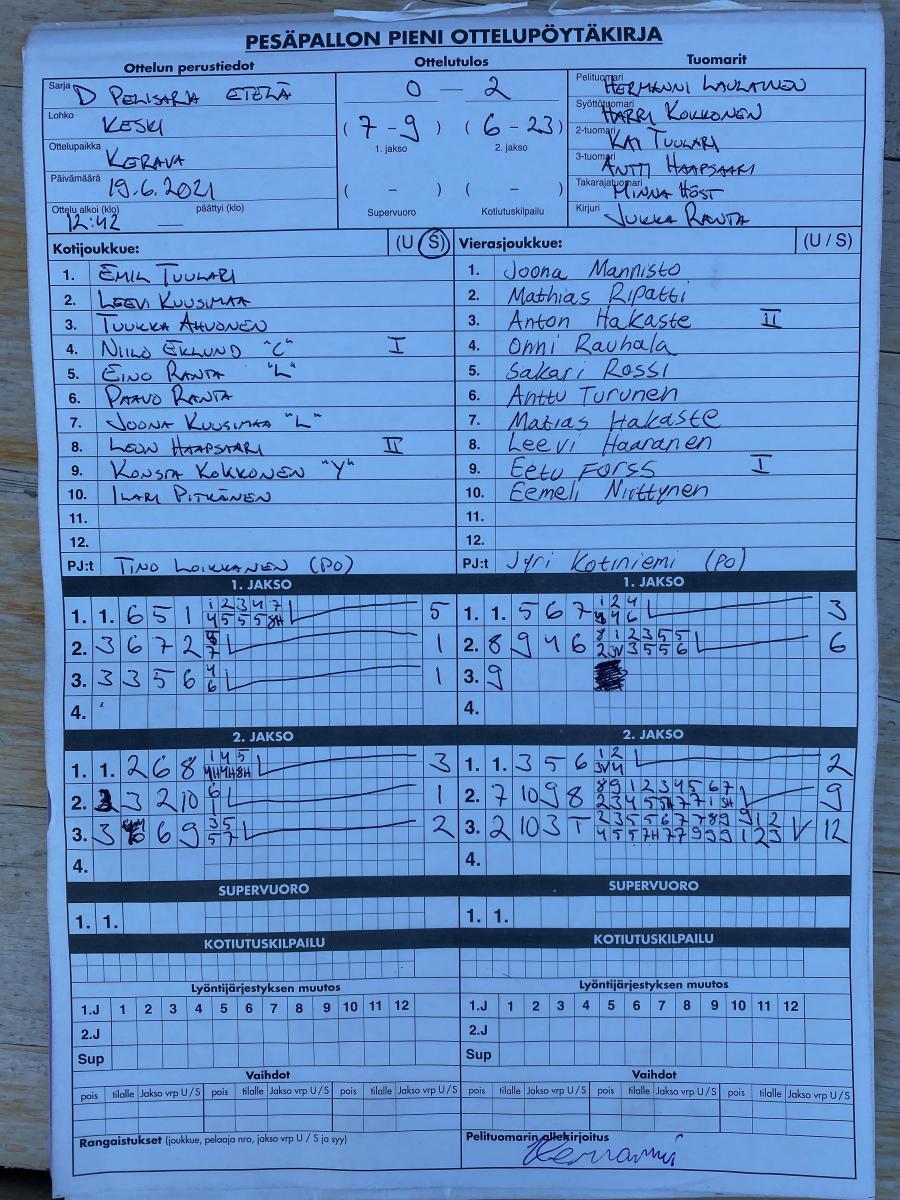 PESÄPALLON PIENI OTTELUPÖYTÄKIRJA
Ottelun perustiedot
Sarja D PELISARJA ETELÄ
Lohko KESKI
Ottelupaikka KERAVA
Päivämäärä 19.6.2021
Ottelu alkoi (klo) päättyi (klo)
12:42 —
Ottelutulos
0 — 2
(7-9) (6-23)
1. jakso 2. jakso
( - ) ( - )
Supervuoro Kotiutuskilpailu
Tuomarit
Pelituomari HERMANNI LAULAINEN
Syöttötuomari HARRI KOKKONEN
2-tuomari KAI TUULARI
3-tuomari ANTTI HAAPSAARI
Takarajatuomari MINNA HÖST
Kirjuri JUKKA RANTA
Kotijoukkue: (U S)
1. EMIL TUULARI
2. LEEVI KUUSIMAA
3. TUUKKA AHVONEN
4. NIILO EKLUND "C" I
5. EINO RANTA "L"
6. PAAVO RANTA
7. JOONA KUUSIMAA "L"
8. LEON HAAPSAARI II
9. KONSTA KOKKONEN "Y"
10. ILARI PITKÄNEN
11.
12.
PJ:t TINO LOIKKANEN (PO)
Vierasjoukkue: (U / S)
1. Joona Mannisto
2. Mathias Ripatti
3. Anton Hakaste II
4. Onni Rauhala
5. Sakari Rossi
6. Anttu Turunen
7. Matias Hakaste
8. Leevi Haaranen
9. Eetu Forss I
10. Eemeli Niittynen
11.
12.
PJ:t Jyri Kotiniemi (PO)
1. JAKSO
1. 1. 6 5 1 1 2 3 4 7 5
4 5 5 5 8H
2. 3 6 7 2 1
3. 3 3 5 6 4 1
6
4.
1. JAKSO
1. 1. 5 6 7 1 2 4 3
4 6
2. 8 9 4 6 8 1 2 3 5 5 6
2 3V 3 5 5 6
3. 9
4.
2. JAKSO
1. 1. 2 6 8 1 4 5 3
4H 4H 8H
2. 3 2 10 6 1
1
3. 3 6 9 3 5 2
5 7
4.
2. JAKSO
1. 1. 3 5 6 1 2 2
3V 4
2. 7 10 9 8 8 9 1 2 3 4 5 6 7 9
2 3 4 5 5H 7 7 1 SH
3. 2 10 3 T 2 3 5 5 6 7 7 8 9 9 1 2 V 12
4 5 5 7H 7 7 9 9 9 1 2 3
4.
SUPERVUORO
1. 1.
SUPERVUORO
1. 1.
KOTIUTUSKILPAILU
KOTIUTUSKILPAILU
Lyöntijärjestyksen muutos
1.J 1 2 3 4 5 6 7 8 9 10 11 12
2.J
Sup
Lyöntijärjestyksen muutos
1.J 1 2 3 4 5 6 7 8 9 10 11 12
2.J
Sup
Vaihdot
pois tilalle Jakso vrp U / S pois tilalle Jakso vrp U / S pois tilalle Jakso vrp U / S
Vaihdot
pois tilalle Jakso vrp U / S pois tilalle Jakso vrp U / S pois tilalle Jakso vrp U / S
Rangaistukset (joukkue, pelaaja nro, jakso vrp U / S ja syy)
Pelituomarin allekirjoitus